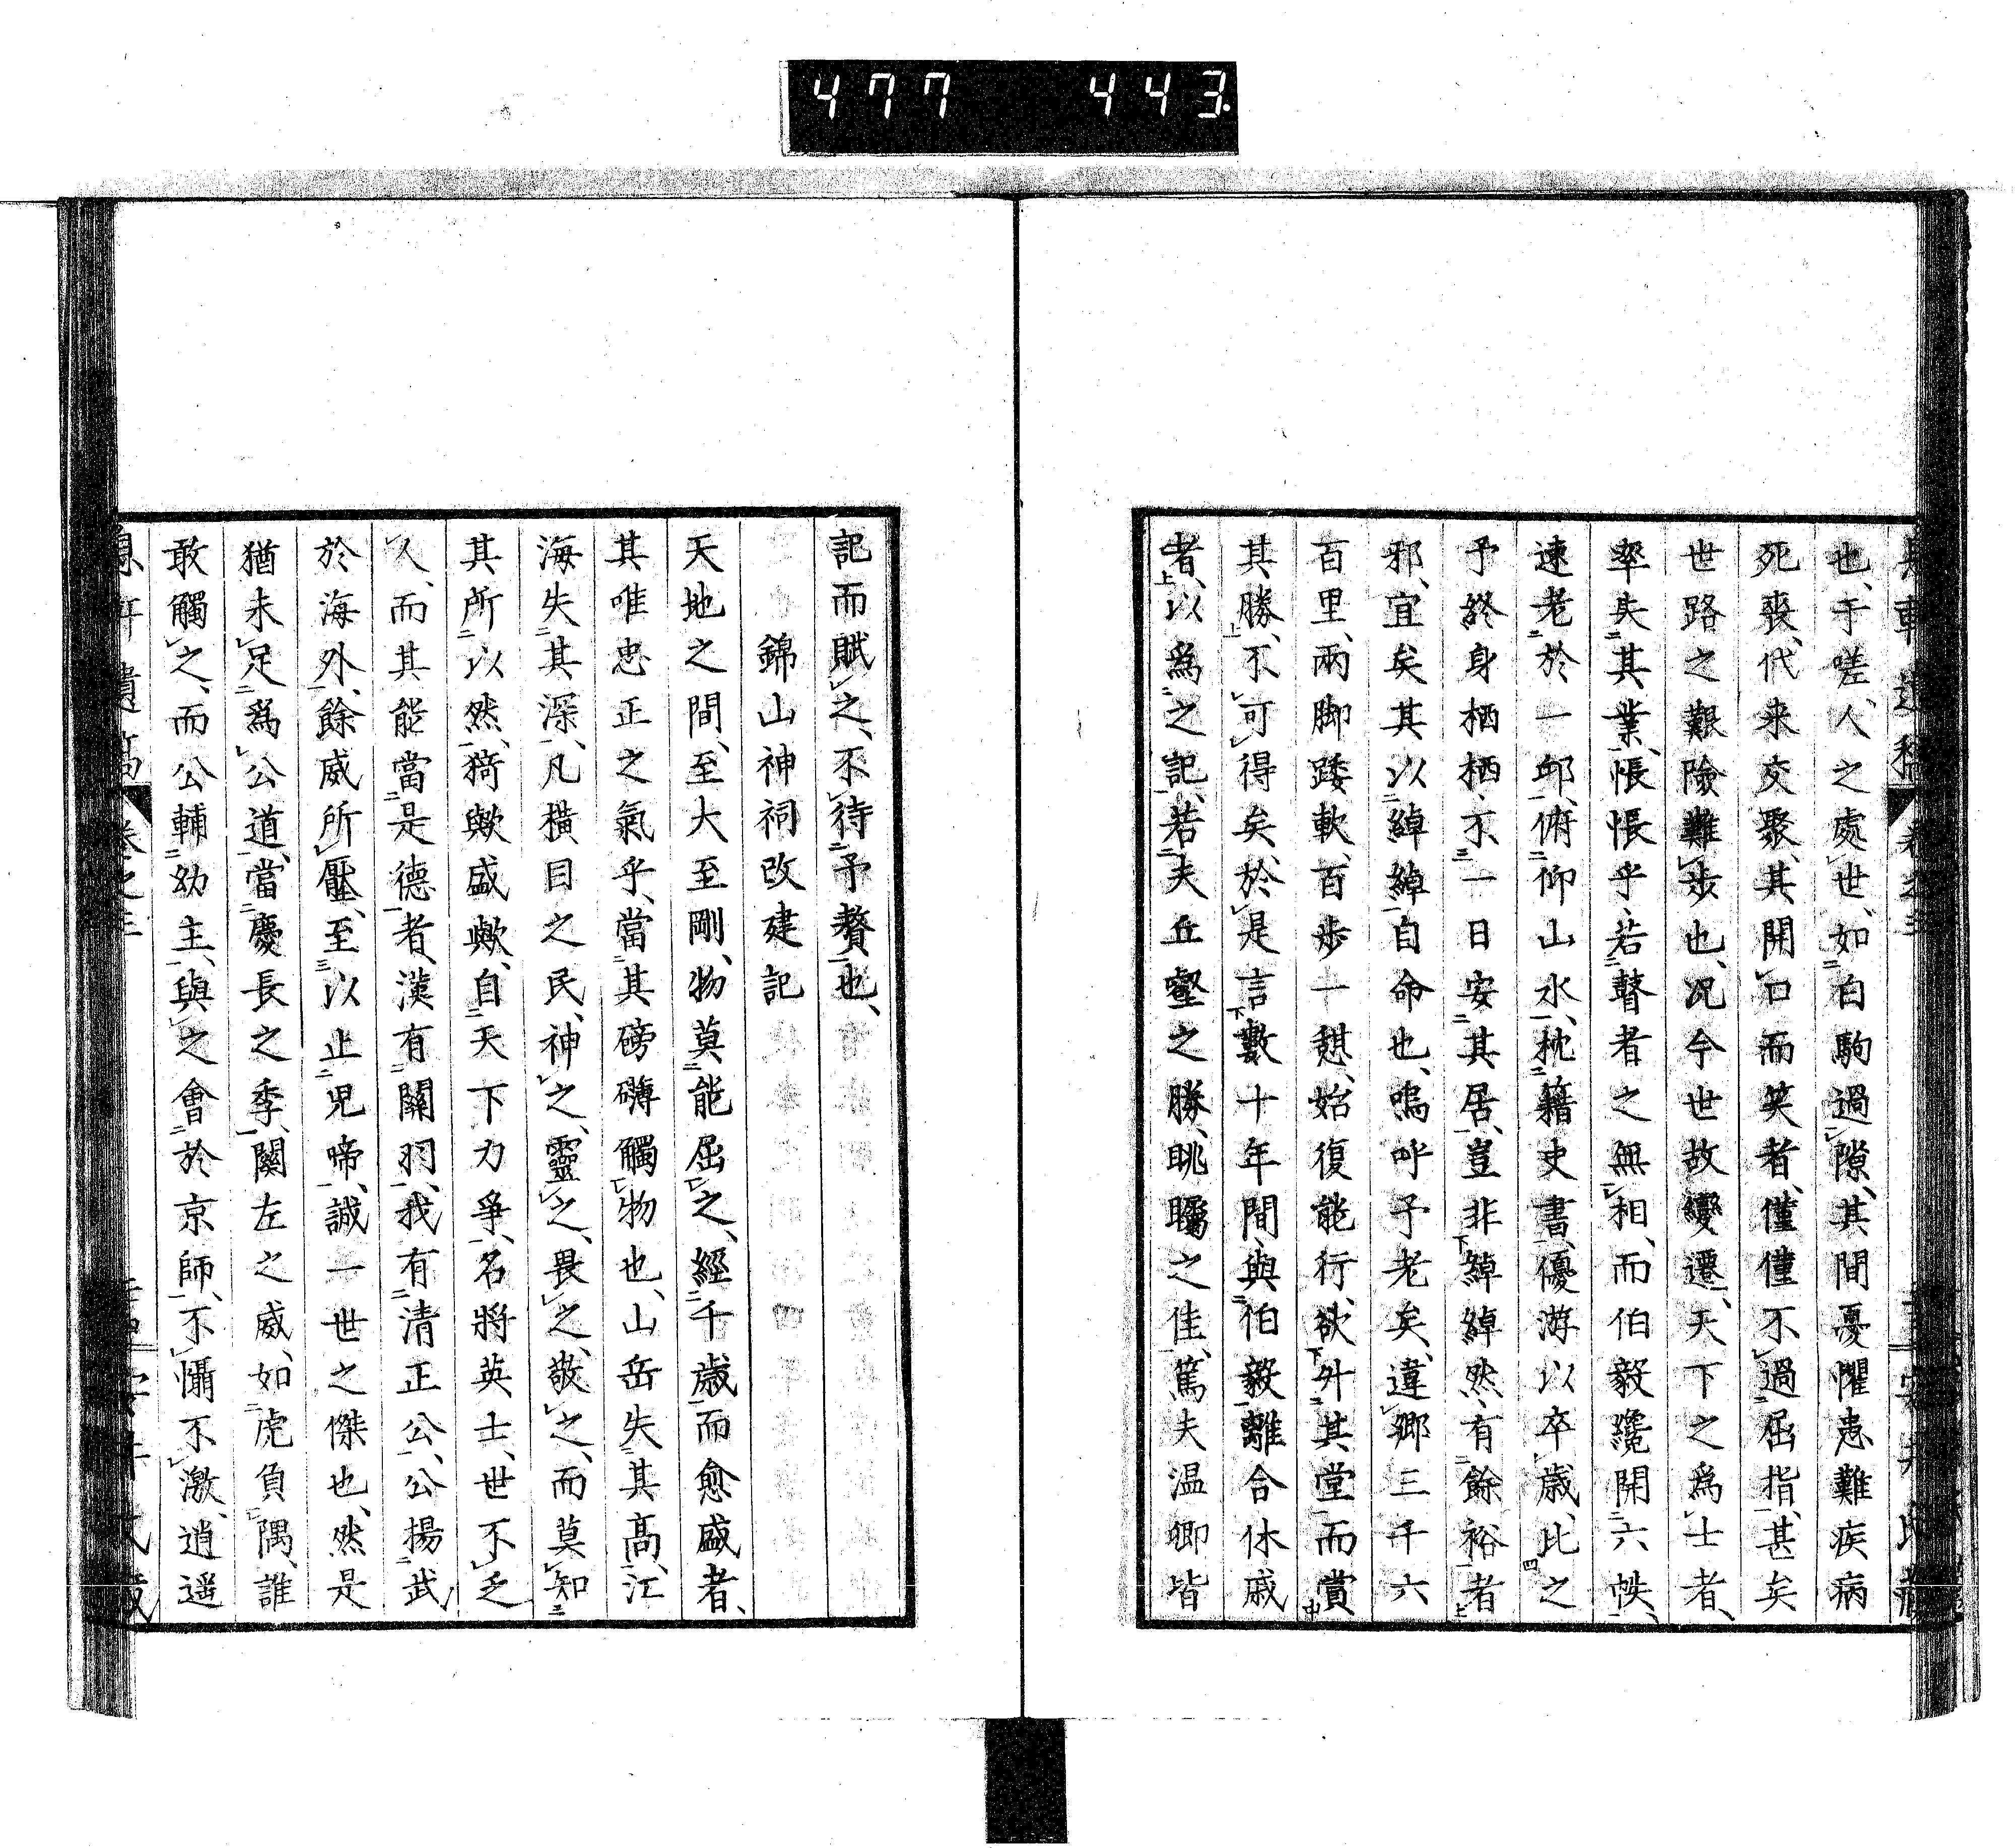 477 443
也、于嗟、人之處世、如白駒過隙、其間憂懼患難疾病
死喪、代来交聚、其開口而笑者、僅僅不過屈指、甚矣
世路之艱險難步也、况今世故變遷、天下之爲士者、
率失其業、悵悵乎、若瞽者之無相、而伯毅纔開六帙、
速老於一邱、俯仰山水、枕籍史書、優游以卒歳、比之
予終身栖栖、不一日安其居、豈非綽綽然、有餘裕者
邪、宜矣其以綽綽自命也、嗚呼予老矣、違郷三千六
百里、兩脚踒軟、百步一憇、始復能行、欲外其堂而賞
其勝、不可得矣、於是言數十年間、與伯毅離合休戚
者、以爲之記、若夫丘壑之勝、眺矚之佳、篤夫温卿皆
記而賦之、不待予贅也、
錦山神祠改建記
天地之間、至大至剛、物莫能屈之、經千歳而愈盛者、
其唯忠正之氣乎、當其磅礴觸物也、山岳失其高、江
海失其深、凡横目之民、神之、靈之、畏之、敬之、而莫知
其所以然、猗歟盛歟、自天下力爭、名將英士、世不乏
人、而其能當是德者、漢有關羽、我有清正公、公揚武
於海外、餘威所壓、至以止兒啼、誠一世之傑也、然是
猶未足爲公道、當慶長之季、關左之威、如虎負隅、誰
敢觸之、而公輔幼主、與之會於京師、不懾不激、逍遥